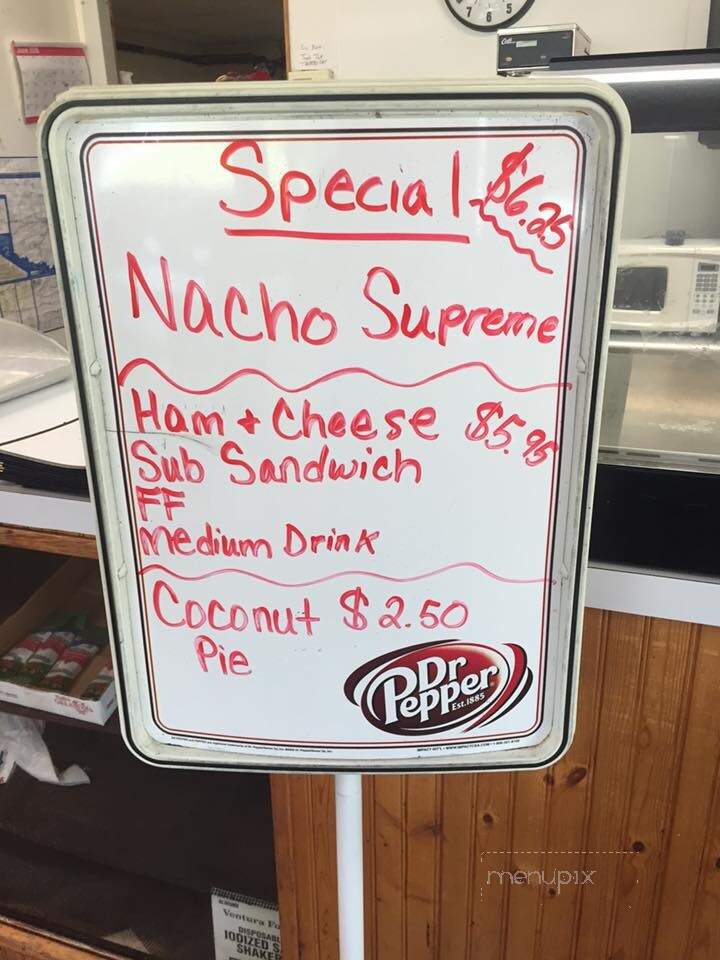 Special $6.25
Nacho Supreme
Ham + Cheese $5.95
Sub Sandwich
FF
Medium Drink
Coconut $2.50
Pie
Dr
Pepper
Est.1885
menupix
Ventura
DISPOSABL
IODIZED S
SHAKER
7 6 5